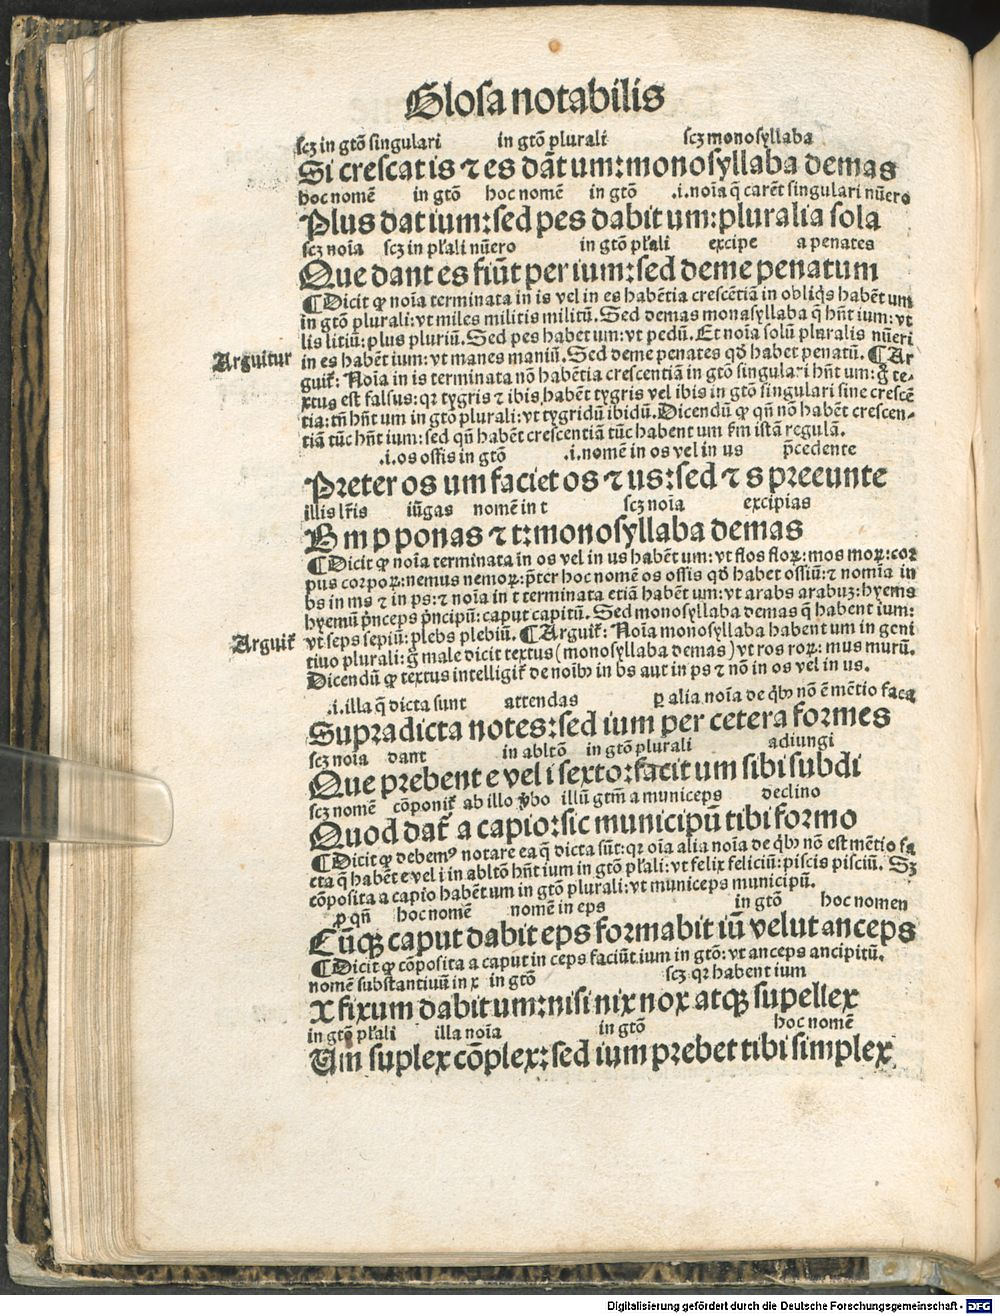 Glosa notabilis
scꝫ in gtõ singulari in gtõ plurali scꝫ monosyllaba
Si crescat is ⁊ es dãt um: monosyllaba demas
hoc nomẽ in gtõ hoc nomẽ in gtõ .i. noĩa q̃ carẽt singulari nũero
Plus dat ium: sed pes dabit um: pluralia sola
scꝫ noĩa scꝫ in pl̃ali nũero in gtõ pl̃ali excipe a penates
Que dant es fiũt per ium: sed deme penatum
¶ Dicit ꝙ noĩa terminata in is vel in es habẽtia crescẽtiã in obliq̃s habẽt um
in gtõ plurali: vt miles militis militũ. Sed demas monasyllaba q̃ hñt ium: vt
lis litiũ: plus pluriũ. Sed pes habet um: vt pedũ. Et noĩa solũ pluralis nũeri
Arguitur
in es habẽt ium: vt manes maniũ. Sed deme penates qđ habet penatũ. ¶ Ar
guit̃: Noĩa in is terminata nõ habẽtia crescentiã in gtõ singulari hñt um: g̃ te-
xtus est falsus: qꝛ tygris ⁊ ibis habẽt tygris vel ibis in gtõ singulari sine crescẽ
tia: tñ hñt um in gtõ plurali: vt tygridũ ibidũ. Dicendũ ꝙ qñ nõ habẽt crescen-
tiã tũc hñt ium: sed qñ habẽt crescentiã tũc habent um ẜm istã regulã.
.i. os ossis in gtõ .i. nomẽ in os vel in us p̃cedente
Preter os um faciet os ⁊ us: sed ⁊ s preeunte
illis lr̃is iũgas nomẽ in t scꝫ noĩa excipias
B m p ponas ⁊ t: monosyllaba demas
¶ Dicit ꝙ noĩa terminata in os vel in us habẽt um: vt flos floꝝ: mos moꝝ: cor
pus corpoꝝ: nemus nemoꝝ: p̃ter hoc nomẽ os ossis qđ habet ossiũ: ⁊ nomĩa in
bs in ms ⁊ in ps: ⁊ noĩa in t terminata etiã habẽt um: vt arabs arabuꝫ: hyems
hyemũ p̃nceps p̃ncipũ: caput capitũ. Sed monosyllaba demas q̃ habent ium:
Arguit̃
vt seps sepiũ: plebs plebiũ. ¶ Arguit̃: Noĩa monosyllaba habent um in geni
tiuo plurali: g̃ male dicit textus (monosyllaba demas) vt ros roꝝ: mus murũ.
Dicendũ ꝙ textus intelligit̃ de noĩbꝰ in bs aut in ps ⁊ nõ in os vel in us.
.i. illa q̃ dicta sunt attendas ꝑ alia noĩa de q̃bꝰ nõ ẽ mẽtio faca
Supradicta notes: sed ium per cetera formes
scꝫ noĩa dant in abltõ in gtõ plurali adiungi
Que prebent e vel i sexto: facit um sibi subdi
scꝫ nomẽ cõponit̃ ab illo v̾bo illũ gtm̃ a municeps declino
Quod dat̃ a capio: sic municipũ tibi formo
¶ Dicit ꝙ debemꝰ notare ea q̃ dicta sũt: qꝛ oĩa alia noĩa de q̃bꝰ nõ est mẽtio fa
cta q̃ habẽt e vel i in abltõ hñt ium in gtõ pl̃ali: vt felix feliciũ: piscis pisciũ. Sꝫ
cõposita a capio habẽt um in gtõ plurali: vt municeps municipũ.
ꝓ qñ hoc nomẽ nomẽ in eps in gtõ hoc nomen
Cũqꝫ caput dabit eps formabit iũ velut anceps
¶ Dicit ꝙ cõposita a caput in ceps faciũt ium in gtõ: vt anceps ancipitũ.
nomẽ substantiuũ in x in gtõ scꝫ qꝛ habent ium
X fixum dabit um: nisi nix nox atqꝫ supellex
in gtõ pl̃ali illa noĩa in gtõ hoc nomẽ
Um suplex cõplex: sed ium prebet tibi simplex
Digitalisierung gefördert durch die Deutsche Forschungsgemeinschaft - DFG